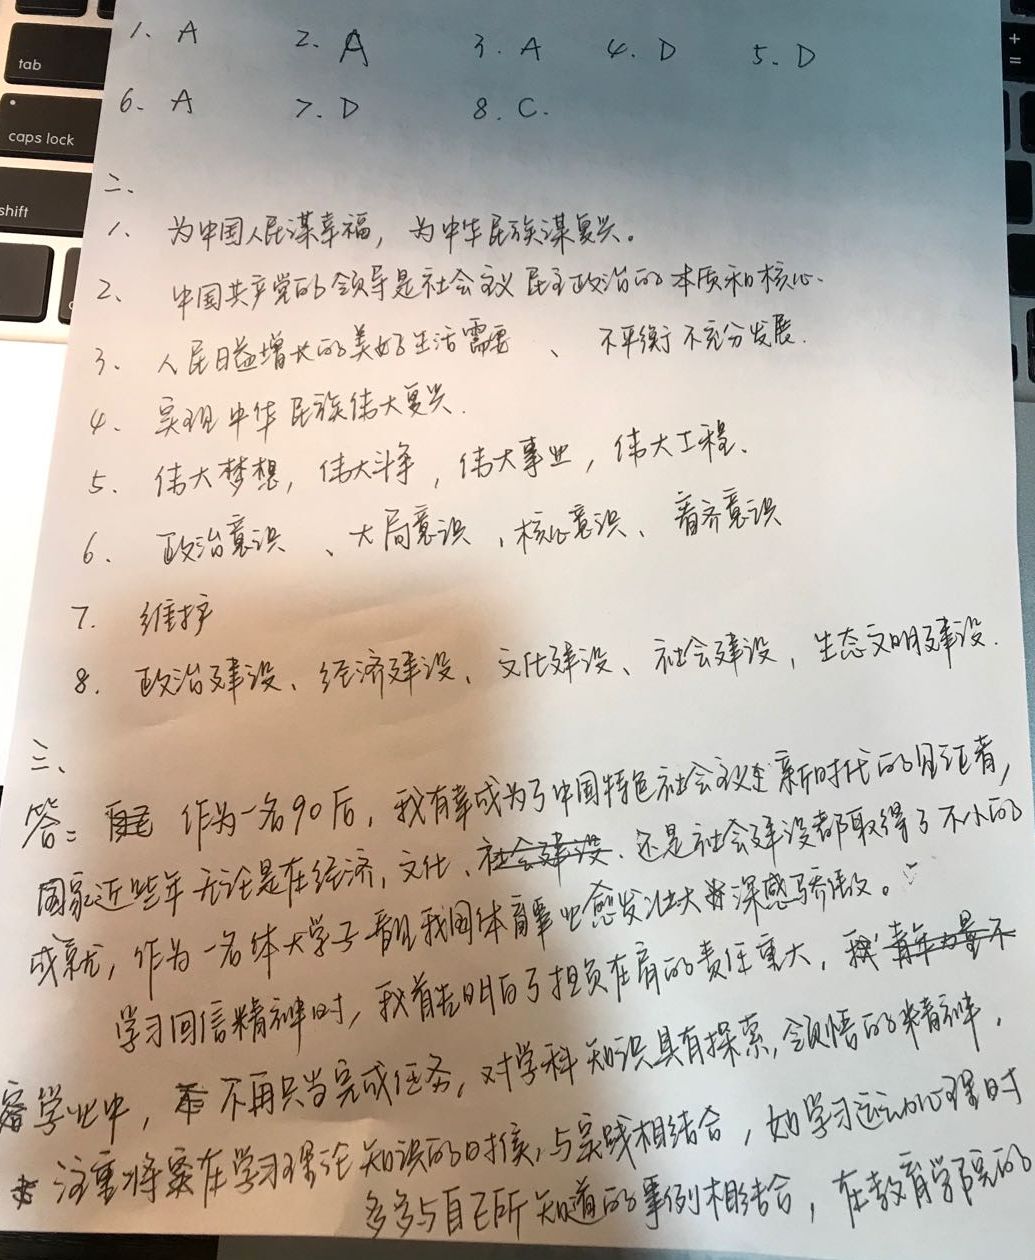 tab
caps lock
shift
+
=
1、A 2、A 3、A 4、D 5、D
6、A 7、D 8、C.
二、
1、为中国人民谋幸福，为中华民族谋复兴。
2、中国共产党的领导是社会主义民主政治的本质和核心.
3、人民日益增长的美好生活需要、不平衡不充分发展.
4、实现中华民族伟大复兴.
5、伟大梦想，伟大斗争，伟大事业，伟大工程、
6、政治意识、大局意识，核心意识、看齐意识
7. 维护
8. 政治建设、经济建设、文化建设、社会建设，生态文明建设.
三、
答：作为一名90后，我有幸成为了中国特色社会主义走新时代的见证者，
国家近些年无论是在经济，文化、社会建设.还是社会建设都取得了不小的
成就，作为一名体大学子看到我国体育事业愈发壮大深感骄傲。
学习回信精神时，我首先明白了担负在肩的责任重大，我青年力量不
学业中，不再只当完成任务，对学科知识具有探索，领悟的精神，
注重将在学习理论知识的时候，与实践相结合，如学习运动心理时
多多与自己所知道的事例相结合，在教育学院的